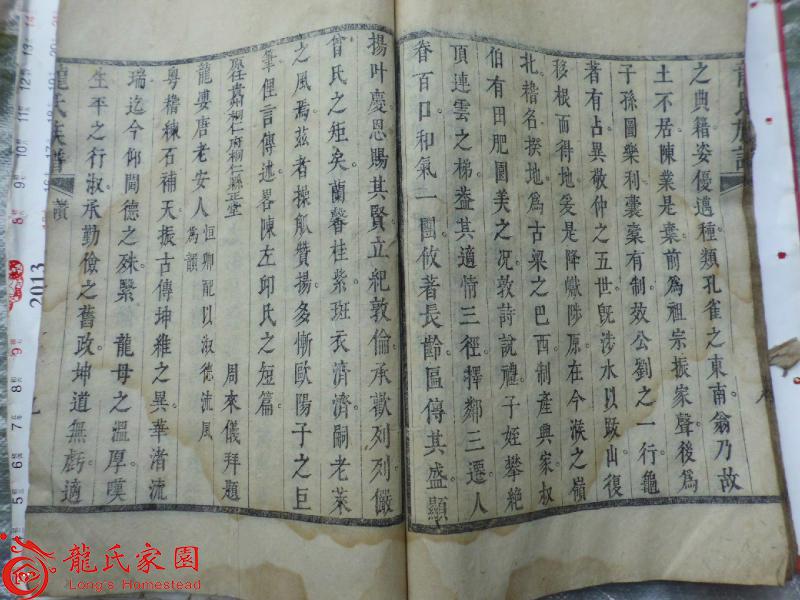 之典籍姿優邁種類孔雀之東南翁乃故
土不居陳業是棄前為祖宗振家聲後為
子孫圖樂利囊橐有制效公劉之一行龜
著有占異敬仲之五世旣涉水以跋山復
移根而得地爰是降巘陟原在今漢之嶺
北稽名揆地為古梁之巴西制產興家叔
伯有田肥園美之况敦詩說禮子姪攀絶
頂連雲之梯葢其適情三徑擇鄰三遷人
眷百口和氣一團攸著長齡區傳其盛顯
揚叶慶恩賜其賢立紀敦倫承歡列列儼
曾氏之矩矣蘭馨桂紫斑衣濟濟嗣老萊
之風焉茲者操觚贊揚多慚歐陽子之巨
筆俚言傳述畧陳左邱氏之短篇
周來儀拜題
原任貴州銅仁府銅仁縣正堂
龍婁唐老安人恒卿配以淑德流風為韻
粵稽棟石補天振古傳坤維之異華渚流
瑞迄今仰閫德之殊繄 龍母之溫厚嘆
生平之行淑承勤儉之舊政坤道無虧適
龍氏族譜 贊
2013
龍氏家園
Long's Homestead